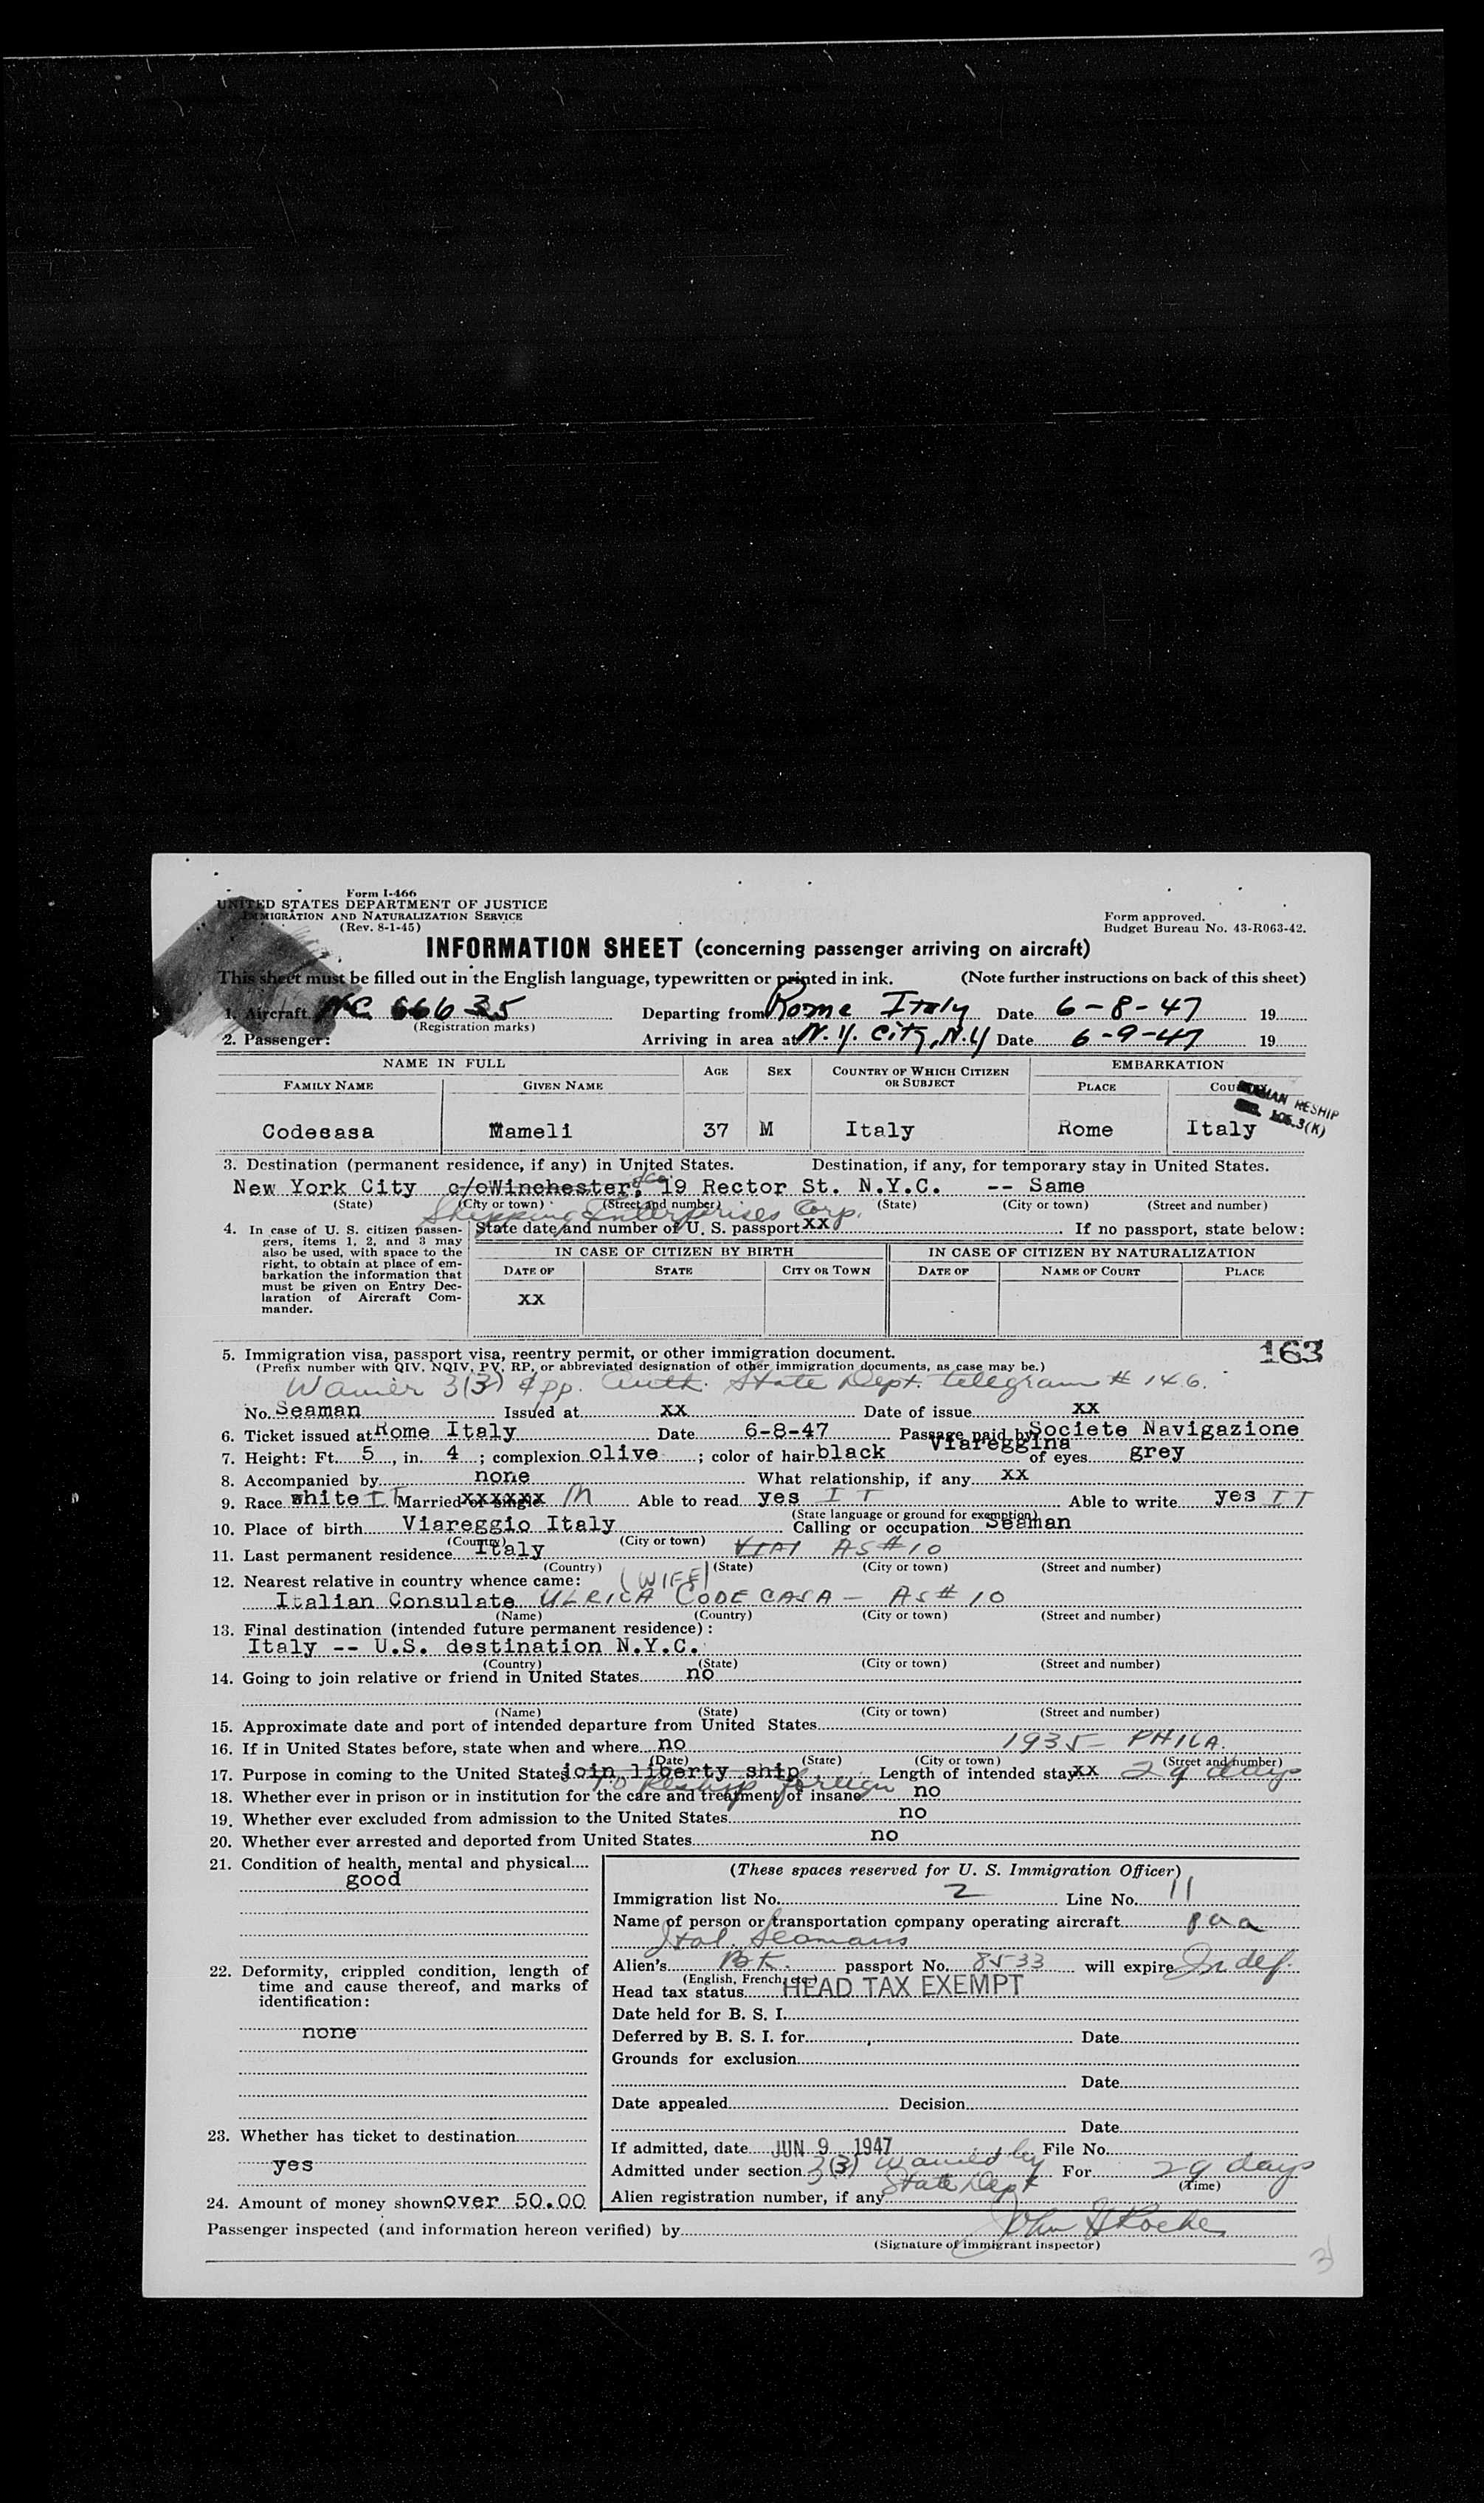 Form I-466
UNITED STATES DEPARTMENT OF JUSTICE
IMMIGRATION AND NATURALIZATION SERVICE
(Rev. 8-1-45)
Form approved.
Budget Bureau No. 43-R063-42.
INFORMATION SHEET (concerning passenger arriving on aircraft)
This sheet must be filled out in the English language, typewritten or printed in ink. (Note further instructions on back of this sheet)
1. Aircraft NC 66635 Departing from Rome Italy Date 6-8-47 19
(Registration marks)
2. Passenger: Arriving in area at N.Y. City, N.Y Date 6-9-47 19
NAME IN FULL AGE SEX COUNTRY OF WHICH CITIZEN OR SUBJECT EMBARKATION
FAMILY NAME GIVEN NAME PLACE
RESHIP
105.3(K)
Codecasa Mameli 37 M Italy Rome Italy
3. Destination (permanent residence, if any) in United States. Destination, if any, for temporary stay in United States.
New York City c/o Winchester, &Co 19 Rector St. N.Y.C. -- Same
(State) (City or town) (Street and number) (State) (City or town) (Street and number)
Shipping Enterprises Corp.
4. In case of U. S. citizen passengers, items 1, 2, and 3 may also be used, with space to the right, to obtain at place of embarkation the information that must be given on Entry Declaration of Aircraft Commander.
State date and number of U. S. passport xx If no passport, state below:
IN CASE OF CITIZEN BY BIRTH IN CASE OF CITIZEN BY NATURALIZATION
DATE OF STATE CITY OR TOWN DATE OF NAME OF COURT PLACE
xx
163
5. Immigration visa, passport visa, reentry permit, or other immigration document.
(Prefix number with QIV, NQIV, PV, RP, or abbreviated designation of other immigration documents, as case may be.)
Waiver 3(3) & pp. Auth. State Dept. telegram # 146.
No. Seaman Issued at xx Date of issue xx
6. Ticket issued at Rome Italy Date 6-8-47 Passage paid by Societe Navigazione
Viareggina
7. Height: Ft. 5, in. 4; complexion olive; color of hair black of eyes grey
8. Accompanied by none What relationship, if any xx
9. Race white IT Married or single xxxxxx M Able to read yes IT Able to write yes IT
(State language or ground for exemption)
10. Place of birth Viareggio Italy Calling or occupation Seaman
(Country) (City or town)
11. Last permanent residence Italy VIAI AS#10
(Country) (State) (City or town) (Street and number)
12. Nearest relative in country whence came: (WIFE)
Italian Consulate ULRICA CODECASA - AS# 10
(Name) (Country) (City or town) (Street and number)
13. Final destination (intended future permanent residence):
Italy -- U.S. destination N.Y.C.
(Country) (State) (City or town) (Street and number)
14. Going to join relative or friend in United States no
(Name) (State) (City or town) (Street and number)
15. Approximate date and port of intended departure from United States
16. If in United States before, state when and where no 1935 - PHILA.
(Date) (State) (City or town) (Street and number)
17. Purpose in coming to the United States join liberty ship Length of intended stay xx 29 days
To Reship foreign
18. Whether ever in prison or in institution for the care and treatment of insane no
19. Whether ever excluded from admission to the United States no
20. Whether ever arrested and deported from United States no
21. Condition of health, mental and physical
good
22. Deformity, crippled condition, length of time and cause thereof, and marks of identification:
none
23. Whether has ticket to destination
yes
24. Amount of money shown over 50.00
(These spaces reserved for U. S. Immigration Officer)
Immigration list No. 2 Line No. 11
Name of person or transportation company operating aircraft paa
Ital. Seamans
Alien's Bk. passport No. 8533 will expire Indef.
(English, French, etc.)
Head tax status HEAD TAX EXEMPT
Date held for B. S. I.
Deferred by B. S. I. for Date
Grounds for exclusion
Date
Date appealed Decision
Date
If admitted, date JUN 9 1947 File No.
Admitted under section 3(3) Waived by State Dept For 29 days
(Time)
Alien registration number, if any
Passenger inspected (and information hereon verified) by John H Roche
(Signature of immigrant inspector)
3